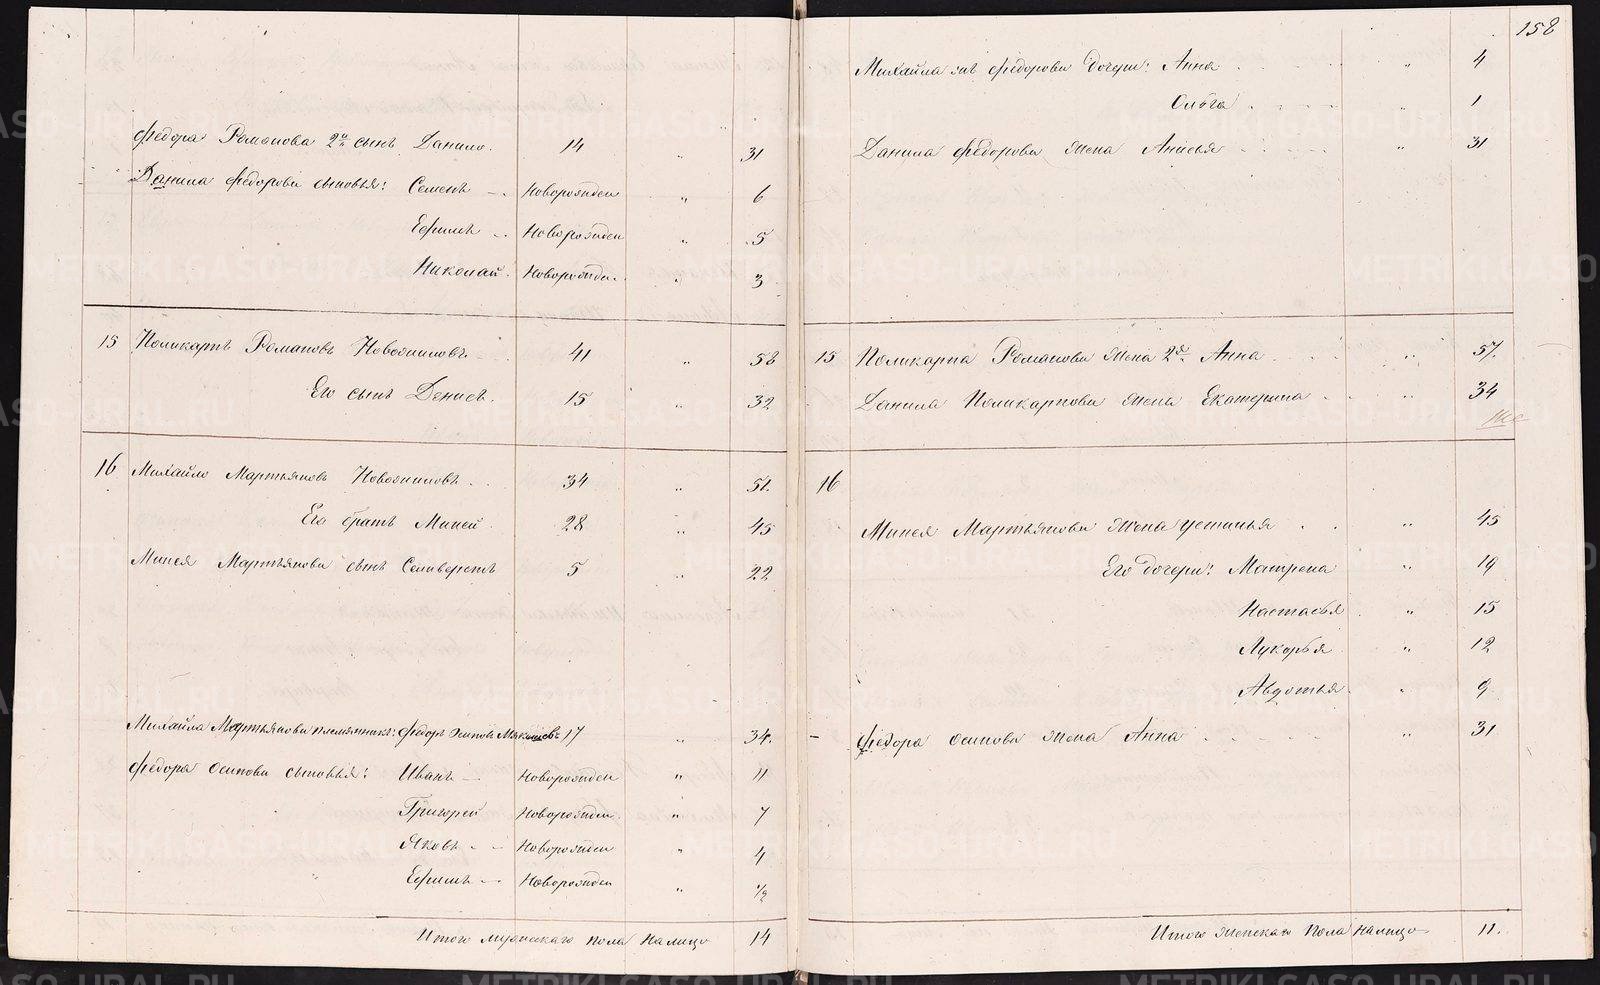 Федора Романова 2й сынъ Данило. 14 " 31
Данила Федорова сыновья: Семенъ новорожден " 6
Ефимъ новорожден " 5
Николай новорожден. " 3
15 Поликарпъ Романовъ Новожиловъ 41 " 58
Его сынъ Денисъ. 15 " 32
16 Михайло Мартьяновъ Новожиловъ 34 " 51.
Его братъ Миней 28 " 45
Минея Мартьянова сынъ Селиверстъ 5 " 22
Михайла Мартьянова племянникъ: Федоръ Осиповъ 17 " 34.
Федора Осипова сыновья: Иванъ новорожден " 11
Григорей новорожден. " 7
Яковъ новорожден " 4
Ефимъ новорожден " 1/2
Итого мужескаго пола налицо 14
158
Михайла Федорова дочери: Анна " 4
Ольга " 1
Данила Федорова жена Анисья " 31
15 Поликарпа Романова жена 2я Анна " 57.
Данила Поликарпова жена Екатерина " 34
16
Минея Мартьянова жена Устинья " 45
Его дочери: Матрена " 19
Настасья " 15
Лукерья " 12
Авдотья " 9
Федора Осипова жена Анна " 31
Итого женскаго пола налицо 11.
METRIKI.GASO-URAL.RU